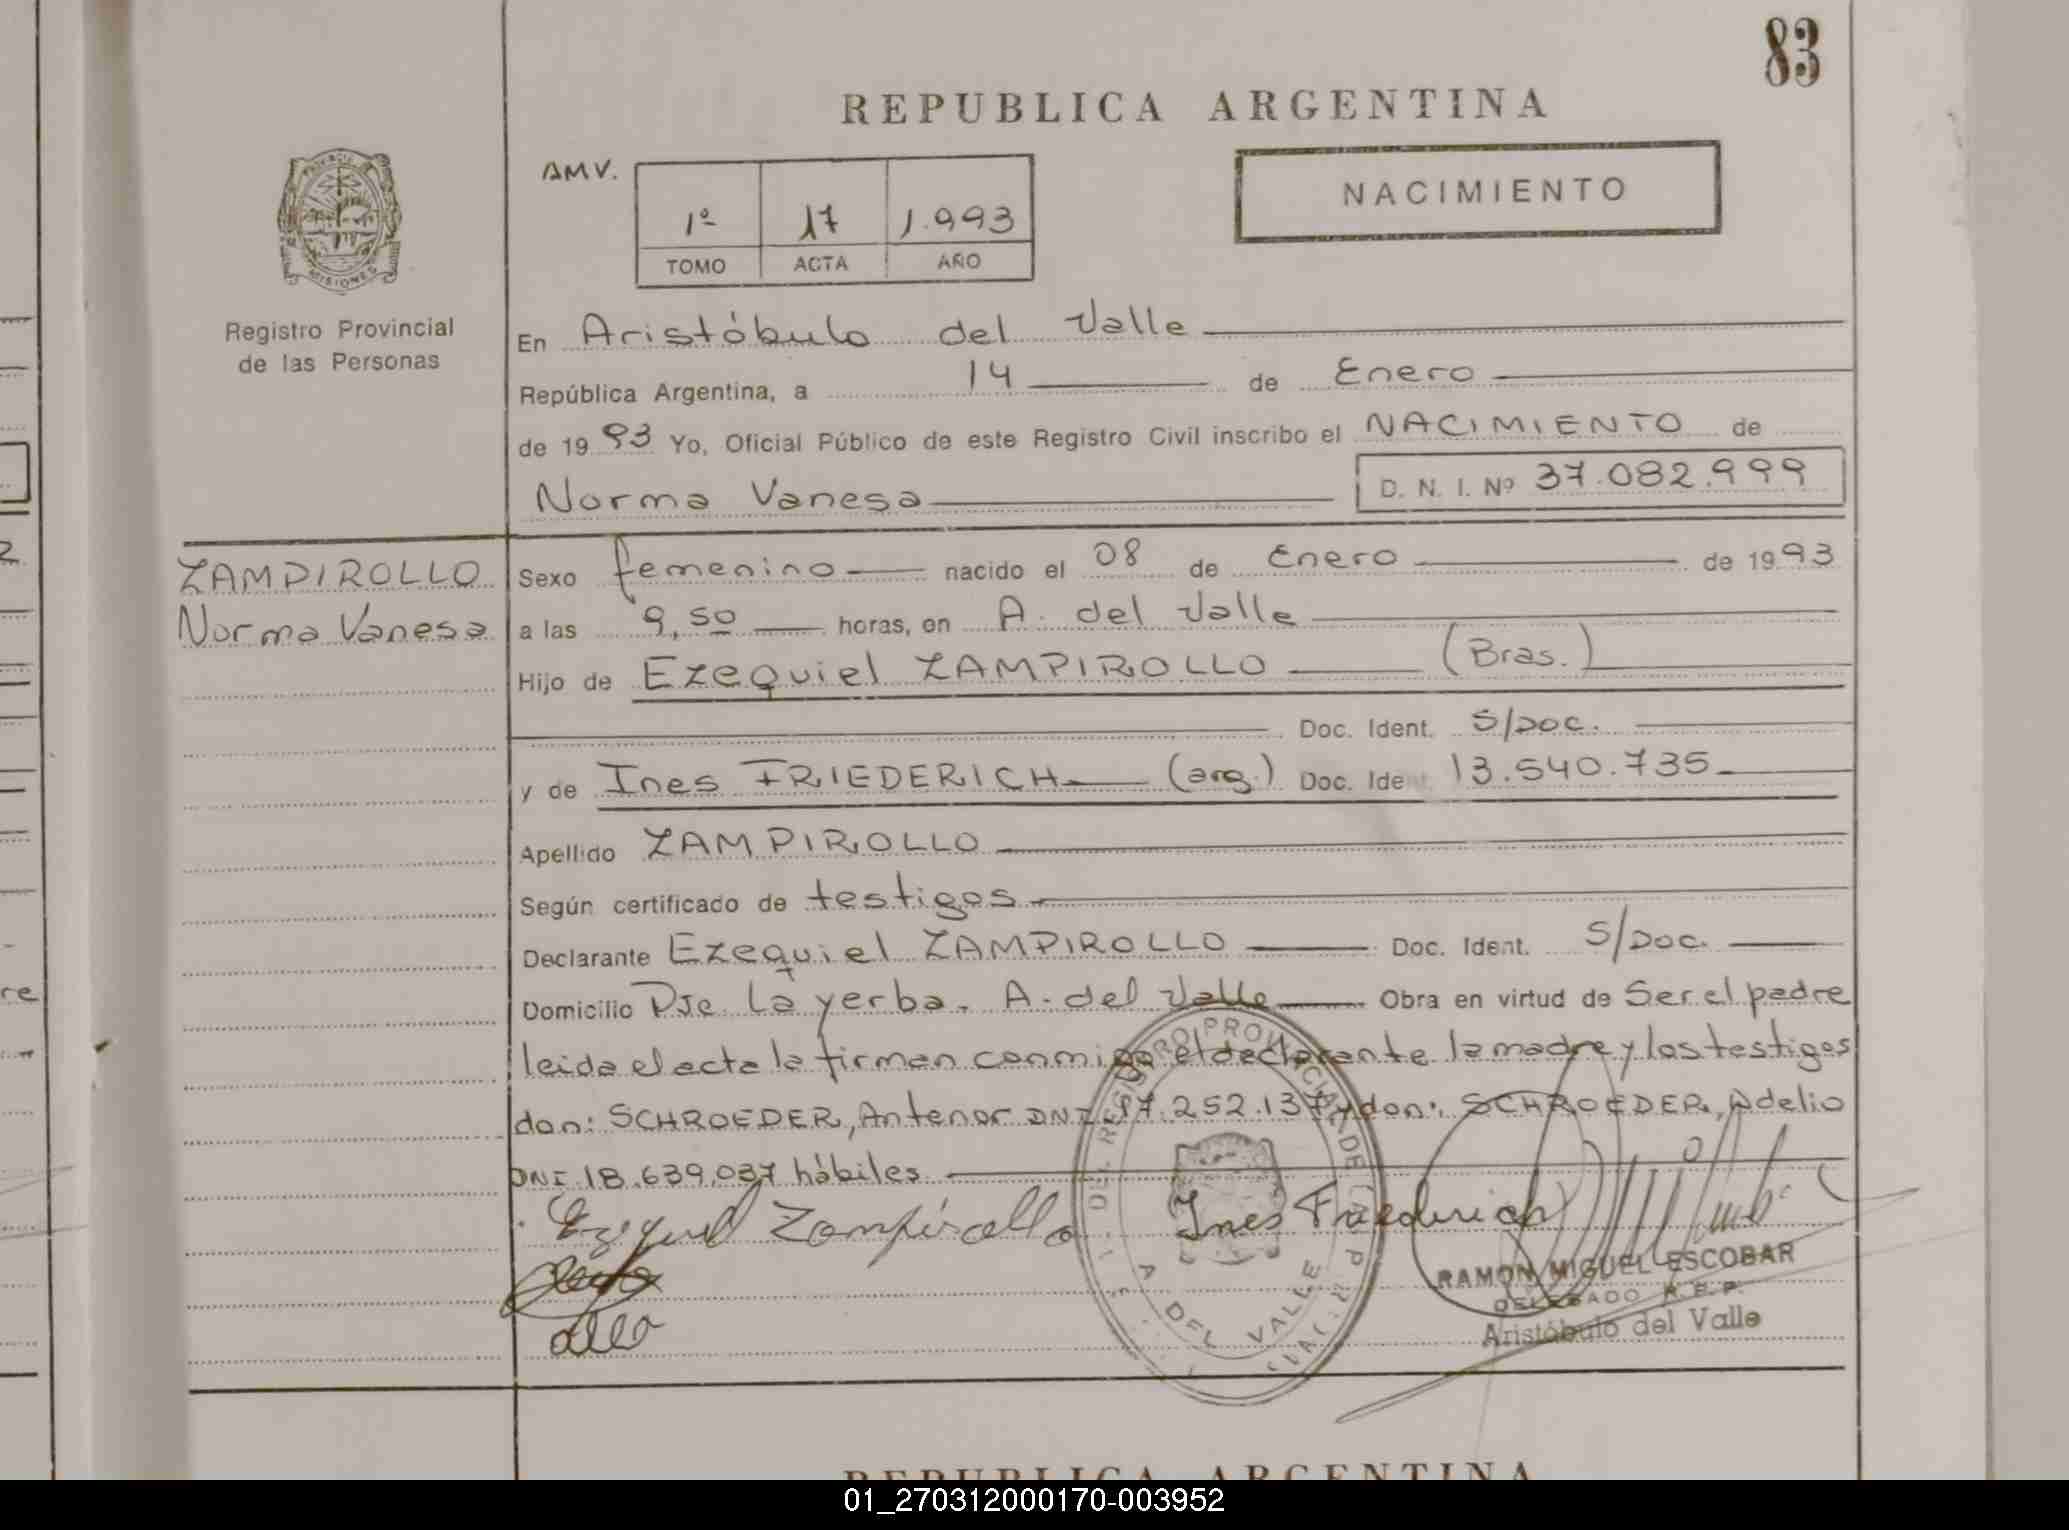 83
REPUBLICA ARGENTINA
AMV.
1º 17 1.993
TOMO ACTA AÑO
NACIMIENTO
PROVINCIA
MISIONES
Registro Provincial
de las Personas
En Aristóbulo del Valle
República Argentina, a 14 de Enero
de 1993 Yo, Oficial Público de este Registro Civil inscribo el NACIMIENTO de
Norma Vanesa D. N. I. Nº 37.082.999
ZAMPIROLLO
Norma Vanesa
Sexo femenino nacido el 08 de Enero de 1993
a las 9,50 horas, en A. del Valle
Hijo de Ezequiel ZAMPIROLLO (Bras.)
Doc. Ident. S/Doc.
y de Ines FRIEDERICH (arg.) Doc. Ident 13.540.735
Apellido ZAMPIROLLO
Según certificado de testigos
Declarante Ezequiel ZAMPIROLLO Doc. Ident. S/Doc.
Domicilio Pje. La yerba. A. del Valle Obra en virtud de Ser el padre
leida el acta la firman conmigo el declarante la madre y los testigos
don: SCHROEDER, Antenor DNI 17.252.137 y don: SCHROEDER, Adelio
DNI 18.639.037 hábiles
Ezequiel Zampirollo Ines Friederich
RAMON MIGUEL ESCOBAR
DELEGADO R.P.P.
Aristóbulo del Valle
DEL REGISTRO PROVINCIAL DE LAS P
A DEL VALLE
REPUBLICA ARGENTINA
01_270312000170-003952